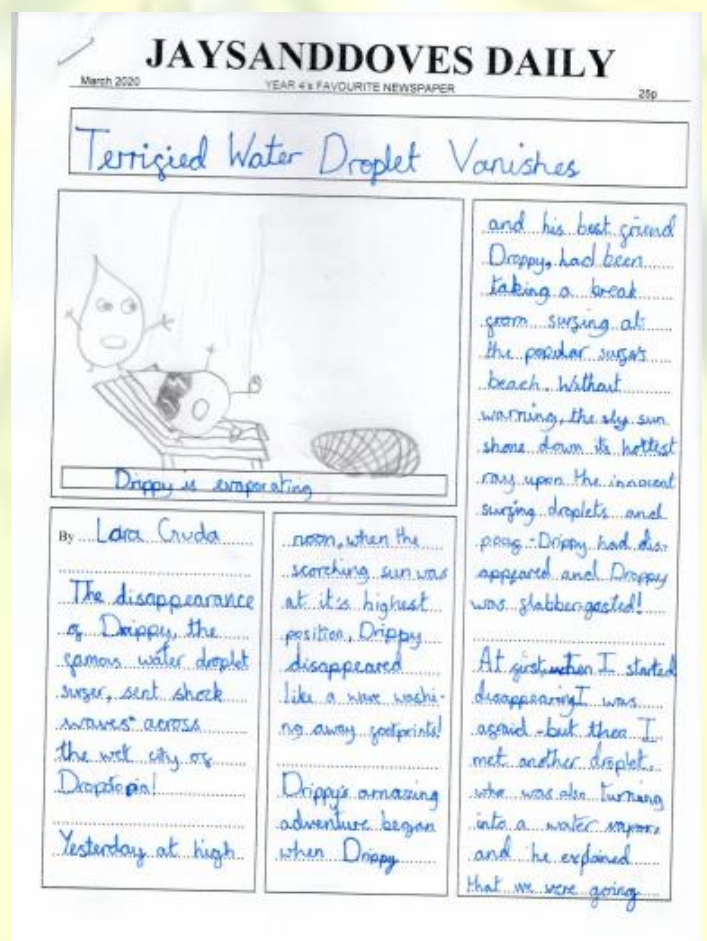 JAYSANDDOVES DAILY
March 2020
YEAR 4's FAVOURITE NEWSPAPER
25p
Terrified Water Droplet Vanishes
Drippy is evaporating
By Lara Cruda
The disappearance
of Drippy, the
famous water droplet
surfer, sent shock
waves across
the wet city of
Dropdopia!
Yesterday at high
noon, when the
scorching sun was
at it's highest
position, Drippy
disappeared
like a wave washi-
ng away footprints!
Drippy's amazing
adventure began
when Drippy
and his best friend
Droppy, had been
taking a break
from surfing at
the popular surfers
beach. Without
warning, the sly sun
shone down its hottest
ray upon the innocent
surfing droplets and
poof - Drippy had dis-
appeared and Droppy
was flabbergasted!
At first, when I started
disappearing I was
afraid - but then I
met another droplet
who was also turning
into a water vapour
and he explained
that we were going